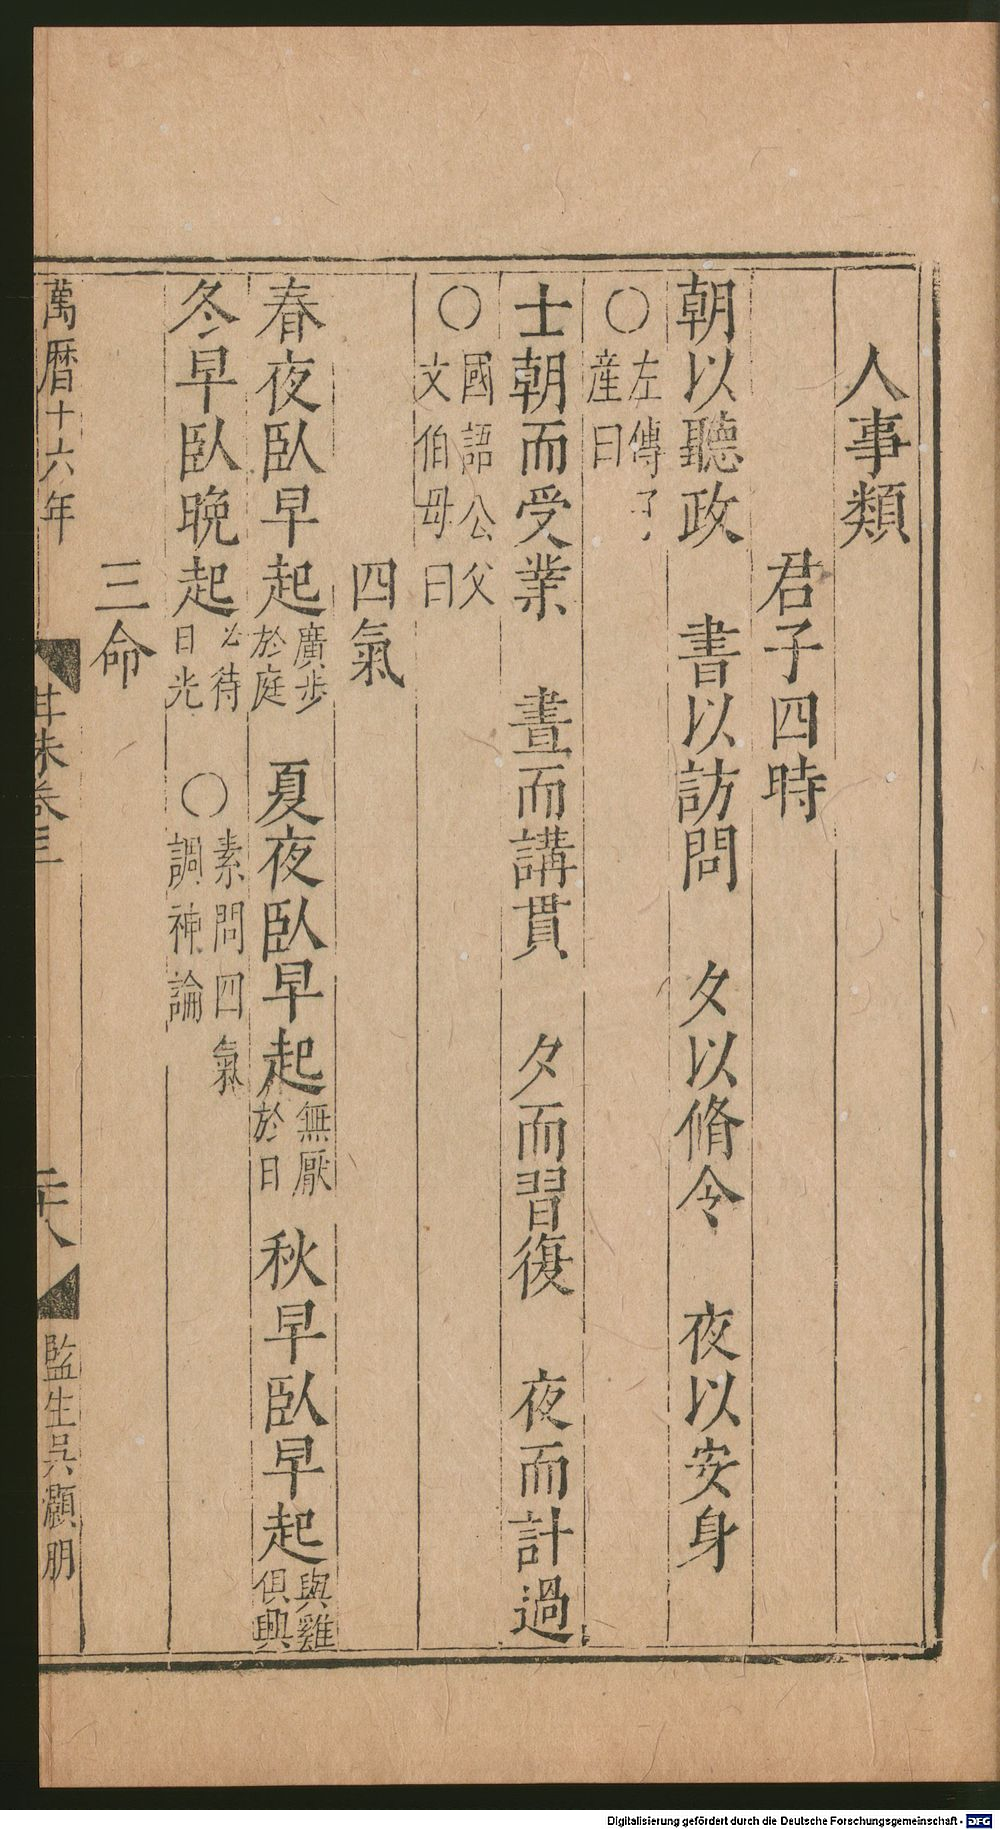 人事類
君子四時
朝以聽政　書以訪問　夕以脩令　夜以安身
○左傳子
産曰
士朝而受業　晝而講貫　夕而習復　夜而計過
○國語公父
文伯母曰
四氣
春夜臥早起廣步
於庭　夏夜臥早起無厭
於日　秋早臥早起與雞
俱興
冬早臥晚起必待
日光　○素問四氣
調神論
三命
萬曆十六年
卷三
監生吳灝朋
Digitalisierung gefördert durch die Deutsche Forschungsgemeinschaft - DFG